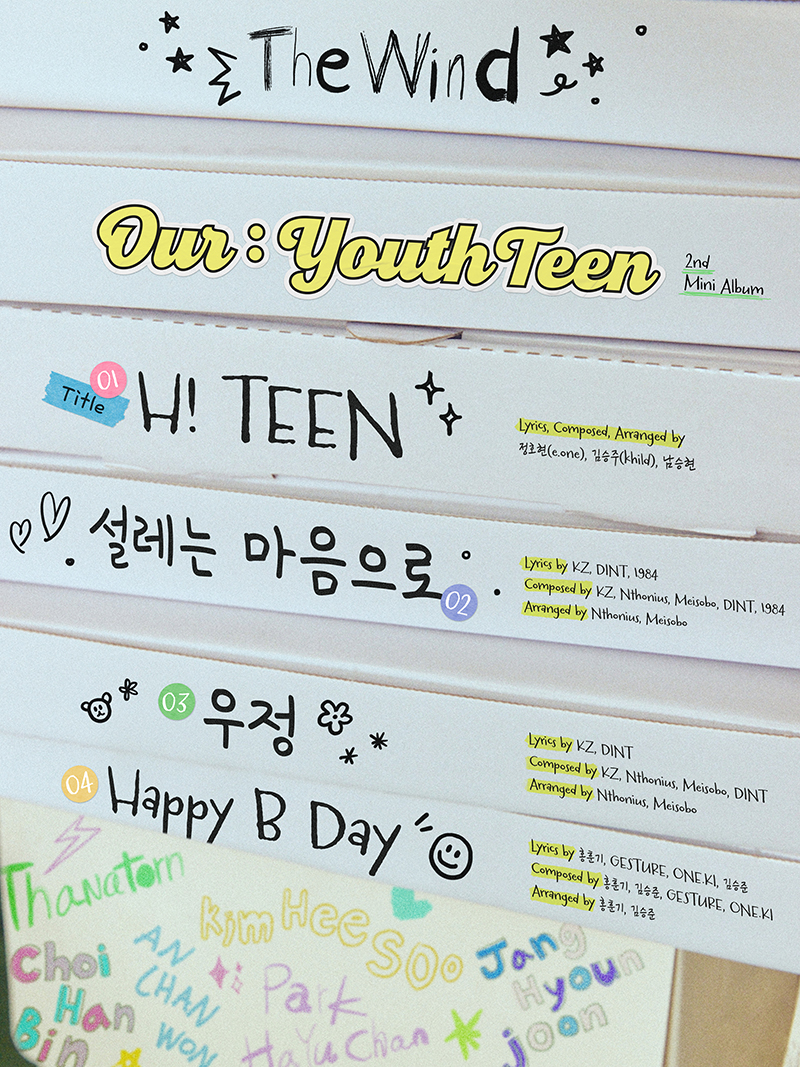 The Wind
Our : YouthTeen
2nd
Mini Album
01
Title
H! TEEN
Lyrics, Composed, Arranged by
정호현(e.one), 김승주(Khild), 남승현
설레는 마음으로
02
Lyrics by KZ, DINT, 1984
Composed by KZ, Nthonius, Meisobo, DINT, 1984
Arranged by Nthonius, Meisobo
03
우정
Lyrics by KZ, DINT
Composed by KZ, Nthonius, Meisobo, DINT
Arranged by Nthonius, Meisobo
04
Happy B Day
Lyrics by 홍훈기, GESTURE, ONE.KI, 김승준
Composed by 홍훈기, 김승준, GESTURE, ONE.KI
Arranged by 홍훈기, 김승준
Thanatorn
Kim Hee Soo
Choi
Han
Bin
AN
CHAN
WON
Park
HaYuChan
Jang
Hyoun
joon